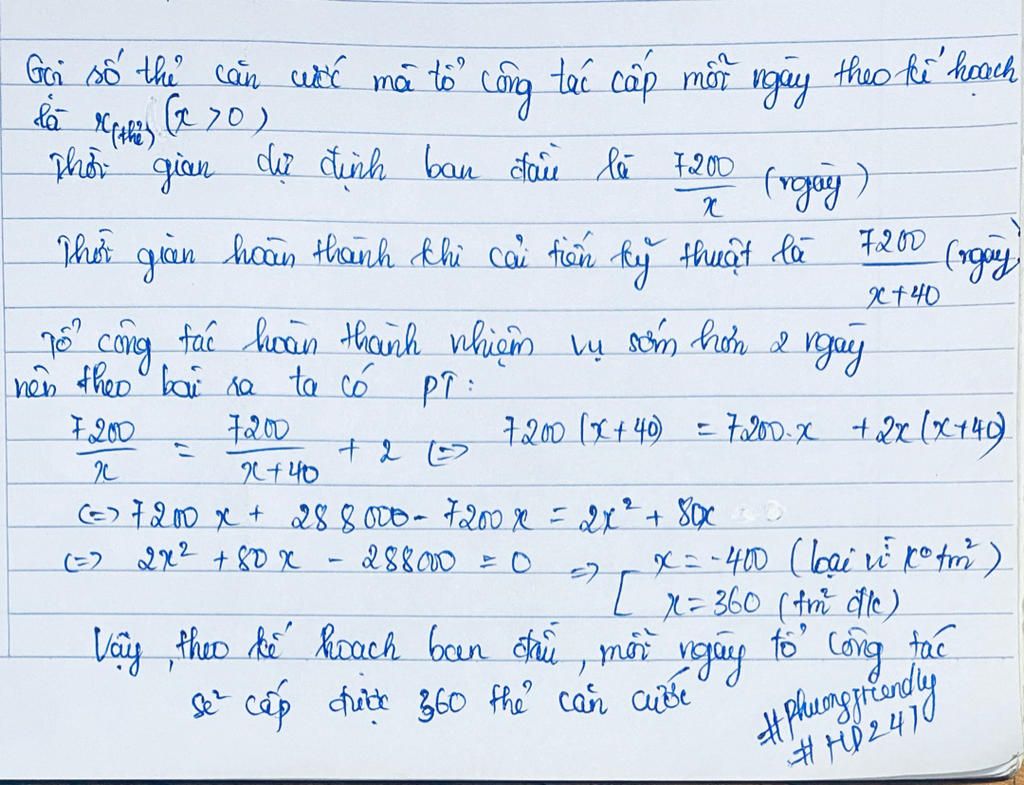 Gọi số thẻ căn cước mà tổ công tác cấp mỗi ngày theo kế hoạch
là x (thẻ) (x > 0)
Thời gian dự định ban đầu là 7200/x (ngày)
Thời gian hoàn thành khi cải tiến kỹ thuật là 7200/(x+40) (ngày)
Tổ công tác hoàn thành nhiệm vụ sớm hơn 2 ngày
nên theo bài ra ta có PT:
7200/x = 7200/(x+40) + 2 <=> 7200 (x+40) = 7200.x + 2x (x+40)
<=> 7200 x + 288000 - 7200 x = 2x² + 80x
<=> 2x² + 80x - 288000 = 0 => [ x = -400 (loại vì k° tm²)
x = 360 (tm² đk)
Vậy, theo kế hoạch ban đầu, mỗi ngày tổ công tác
sẽ cấp được 360 thẻ căn cước
#phuongfriendly
#HP247